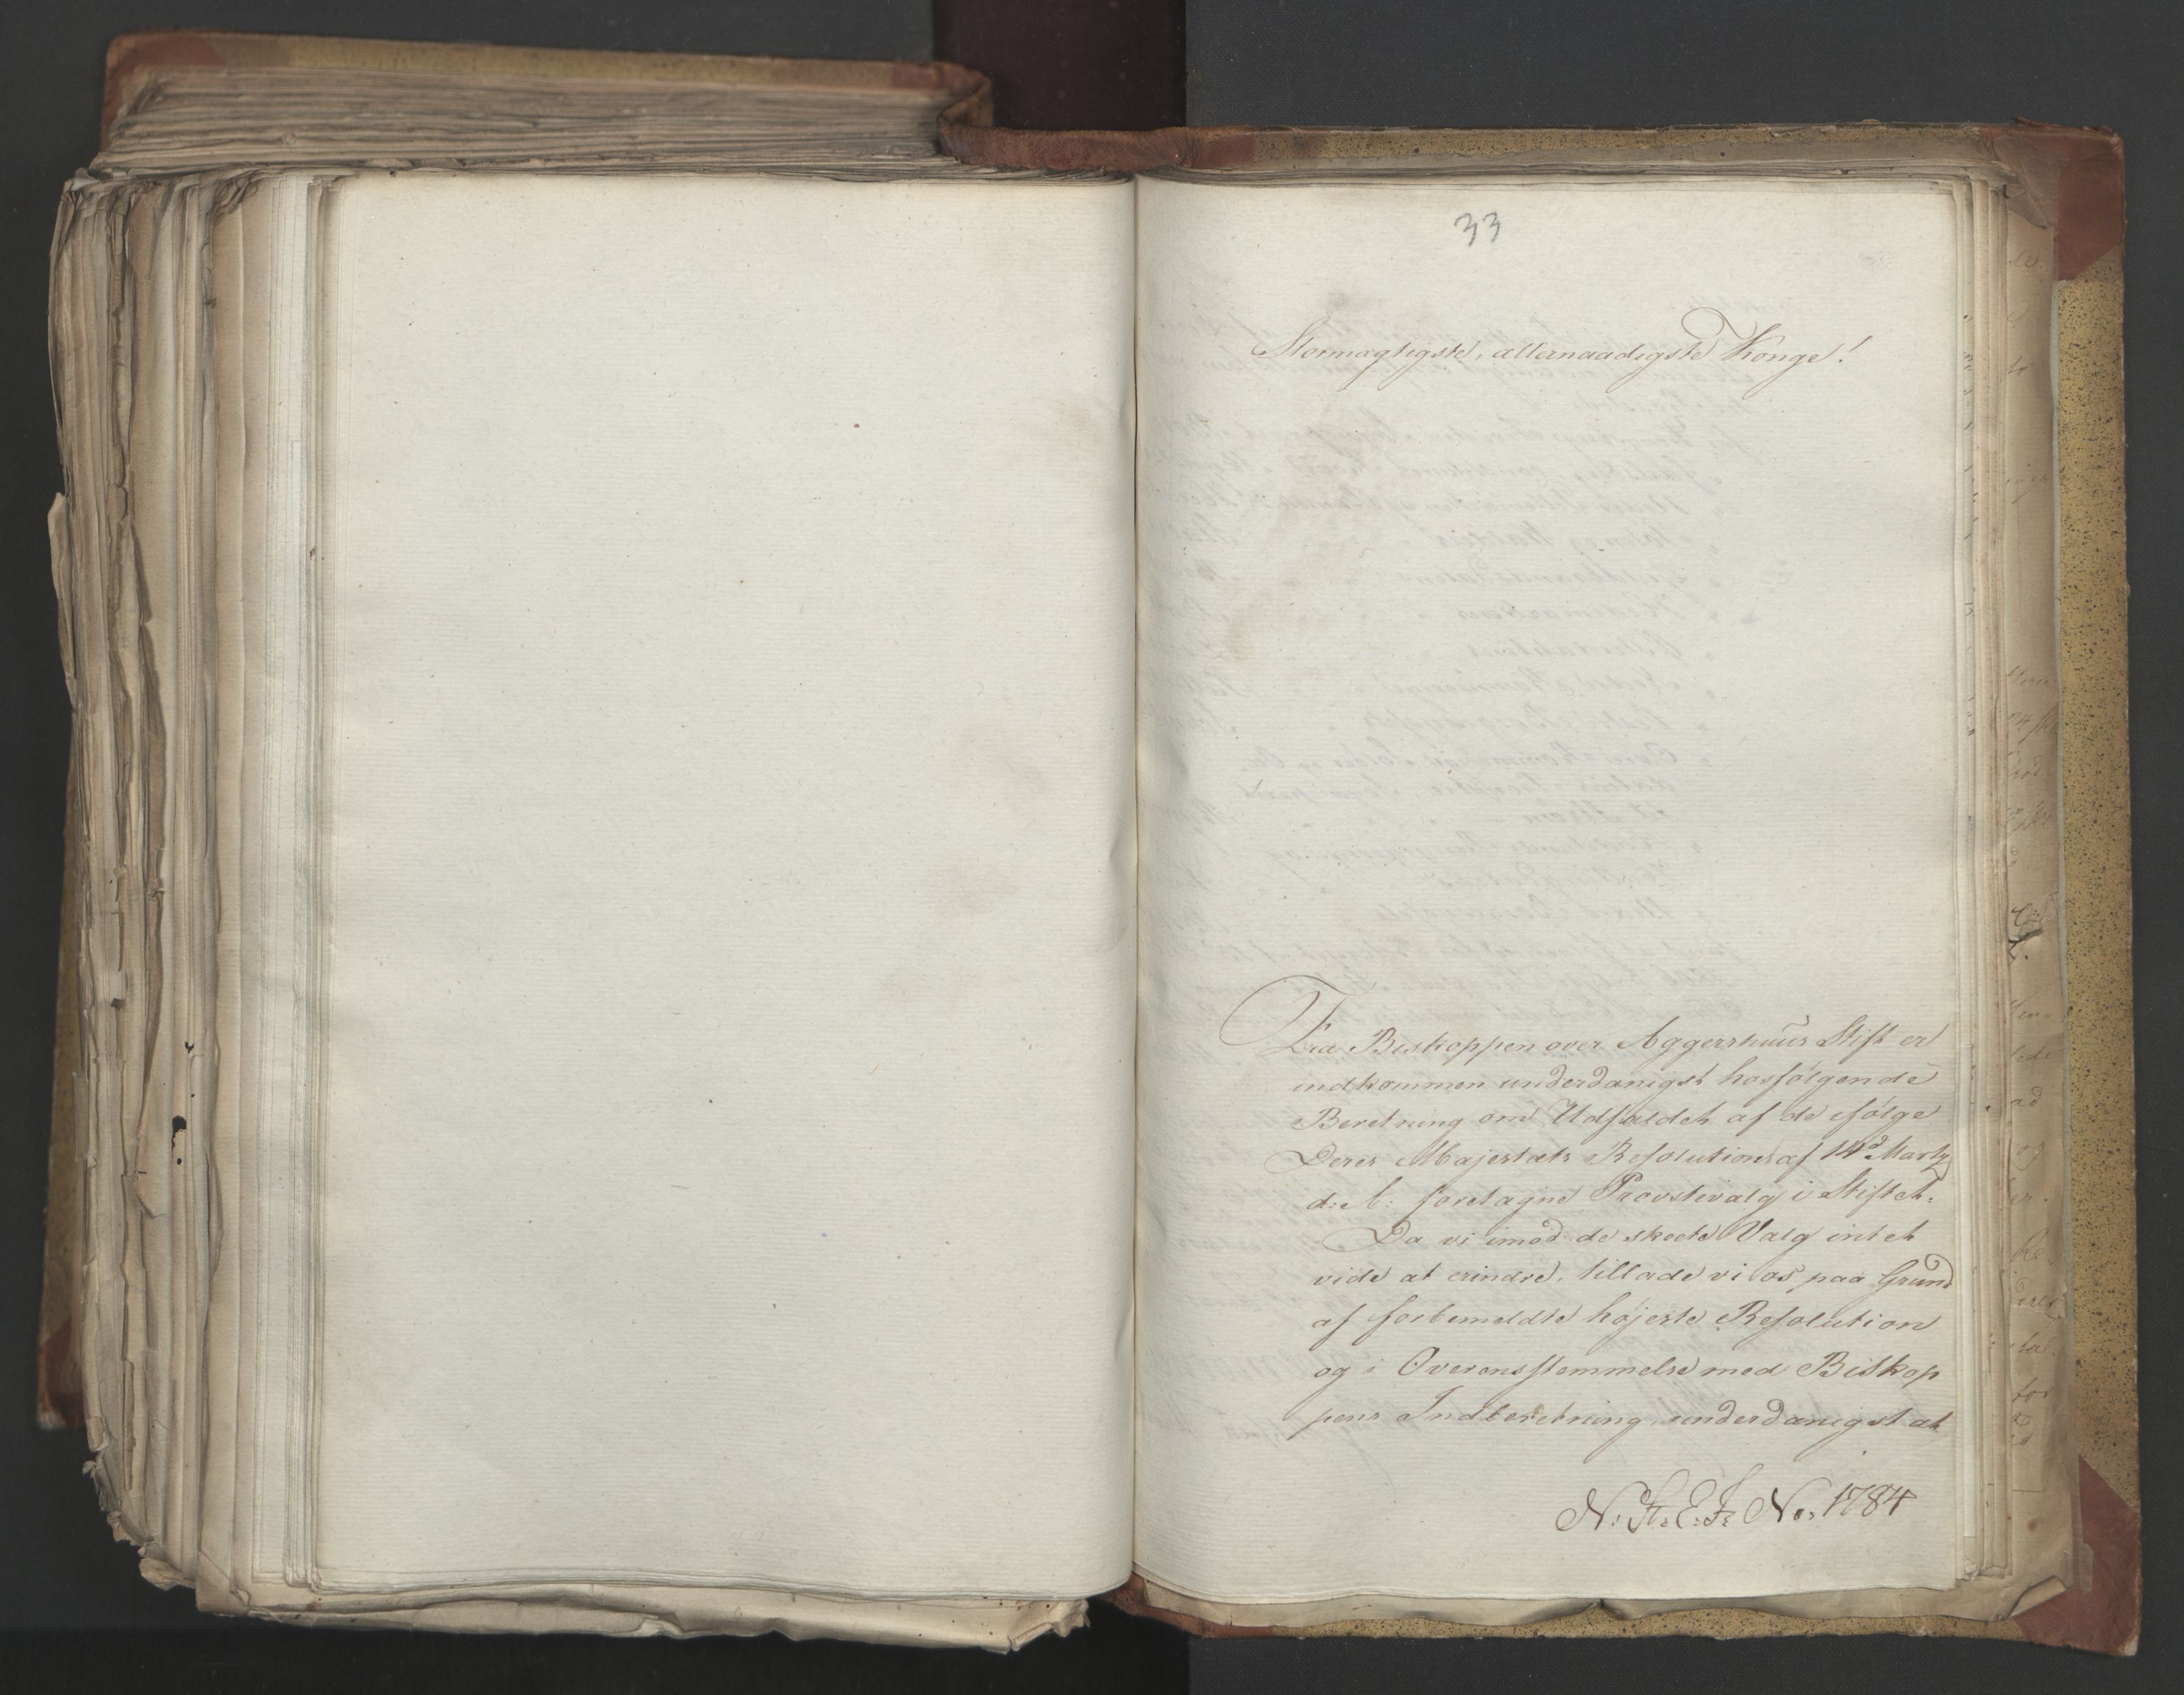 33
Stormægtigste, allernaadigste Konge!
Fra Biskoppen over Aggershuus Stift er
indkommen underdanigst hosfølgende
Beretning om Udfaldet af de ifølge
Deres Majestæts Resolution af 14d Marty
d: A: foretagne Provstevalg i Stiftet.
Da vi imod de skeete Valg intet
vide at erindre, tillade vi os, paa Grund
af forbemeldte højeste Resolution
og i Overensstemmelse med Biskop
pens Indberetning, underdanigst at
No. 1784